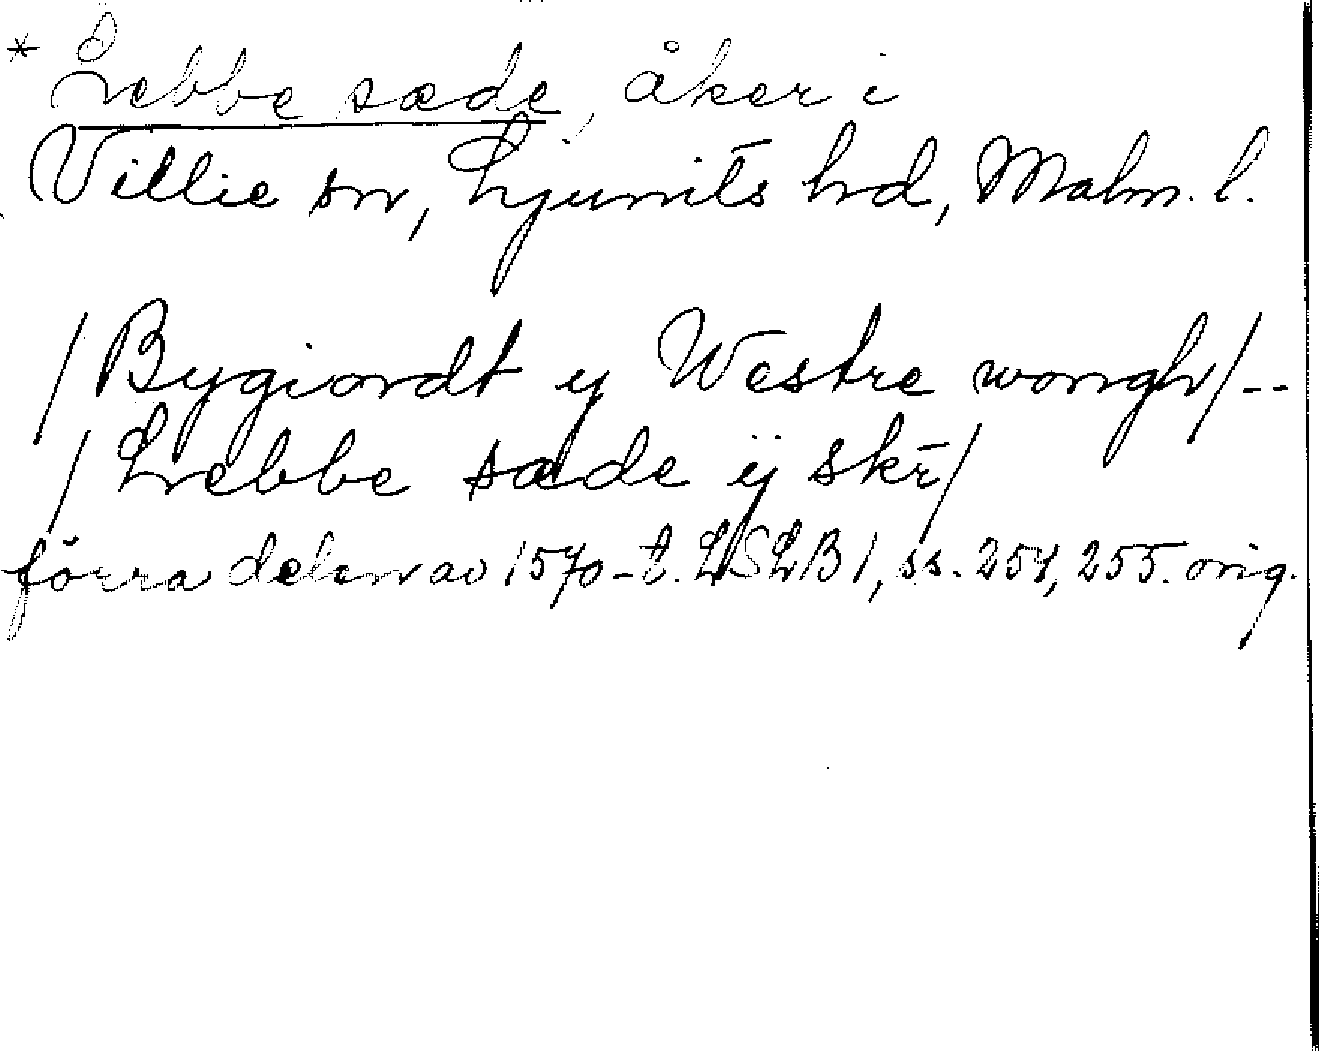 * Lebbe sæde, åker i
Villie sn, Ljunits hd, Malm. l.
/Bygiordt y Westre wongh/--
/Lebbe sæde ÿ skr̄/
förra delen av 1570-t. LSLB 1, ss. 254, 255. orig.